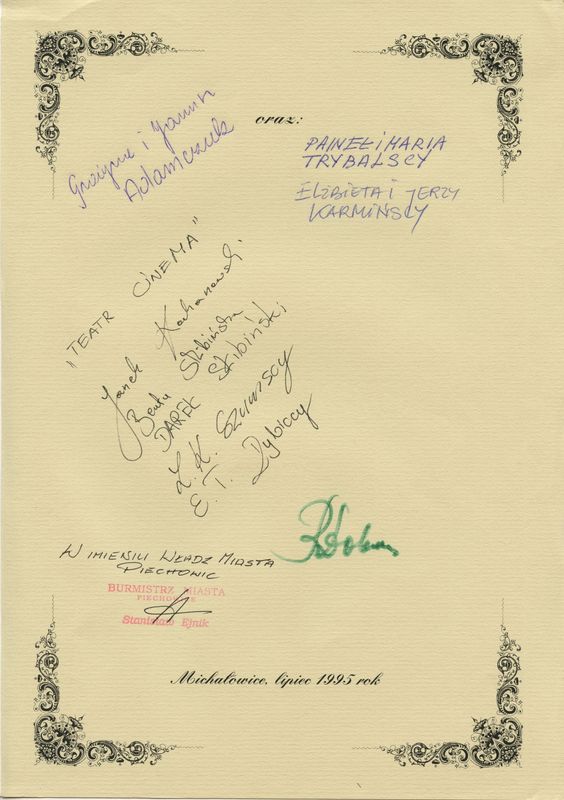 oraz:
Grażyna i Janusz
Adamczak
PAWEŁ i MARIA
TRYBALSCY
ELŻBIETA i JERZY
KARMIŃSCY
"TEATR CINEMA"
Janek Kochanowski
Beata Skibińska
DAREK Skibiński
Z. K. Szumscy
E. T. Dybiccy
W IMIENIU WŁADZ MIASTA
PIECHOWIC
BURMISTRZ MIASTA
PIECHOWICE
Stanisław Ejnik
Michałowice, lipiec 1995 rok